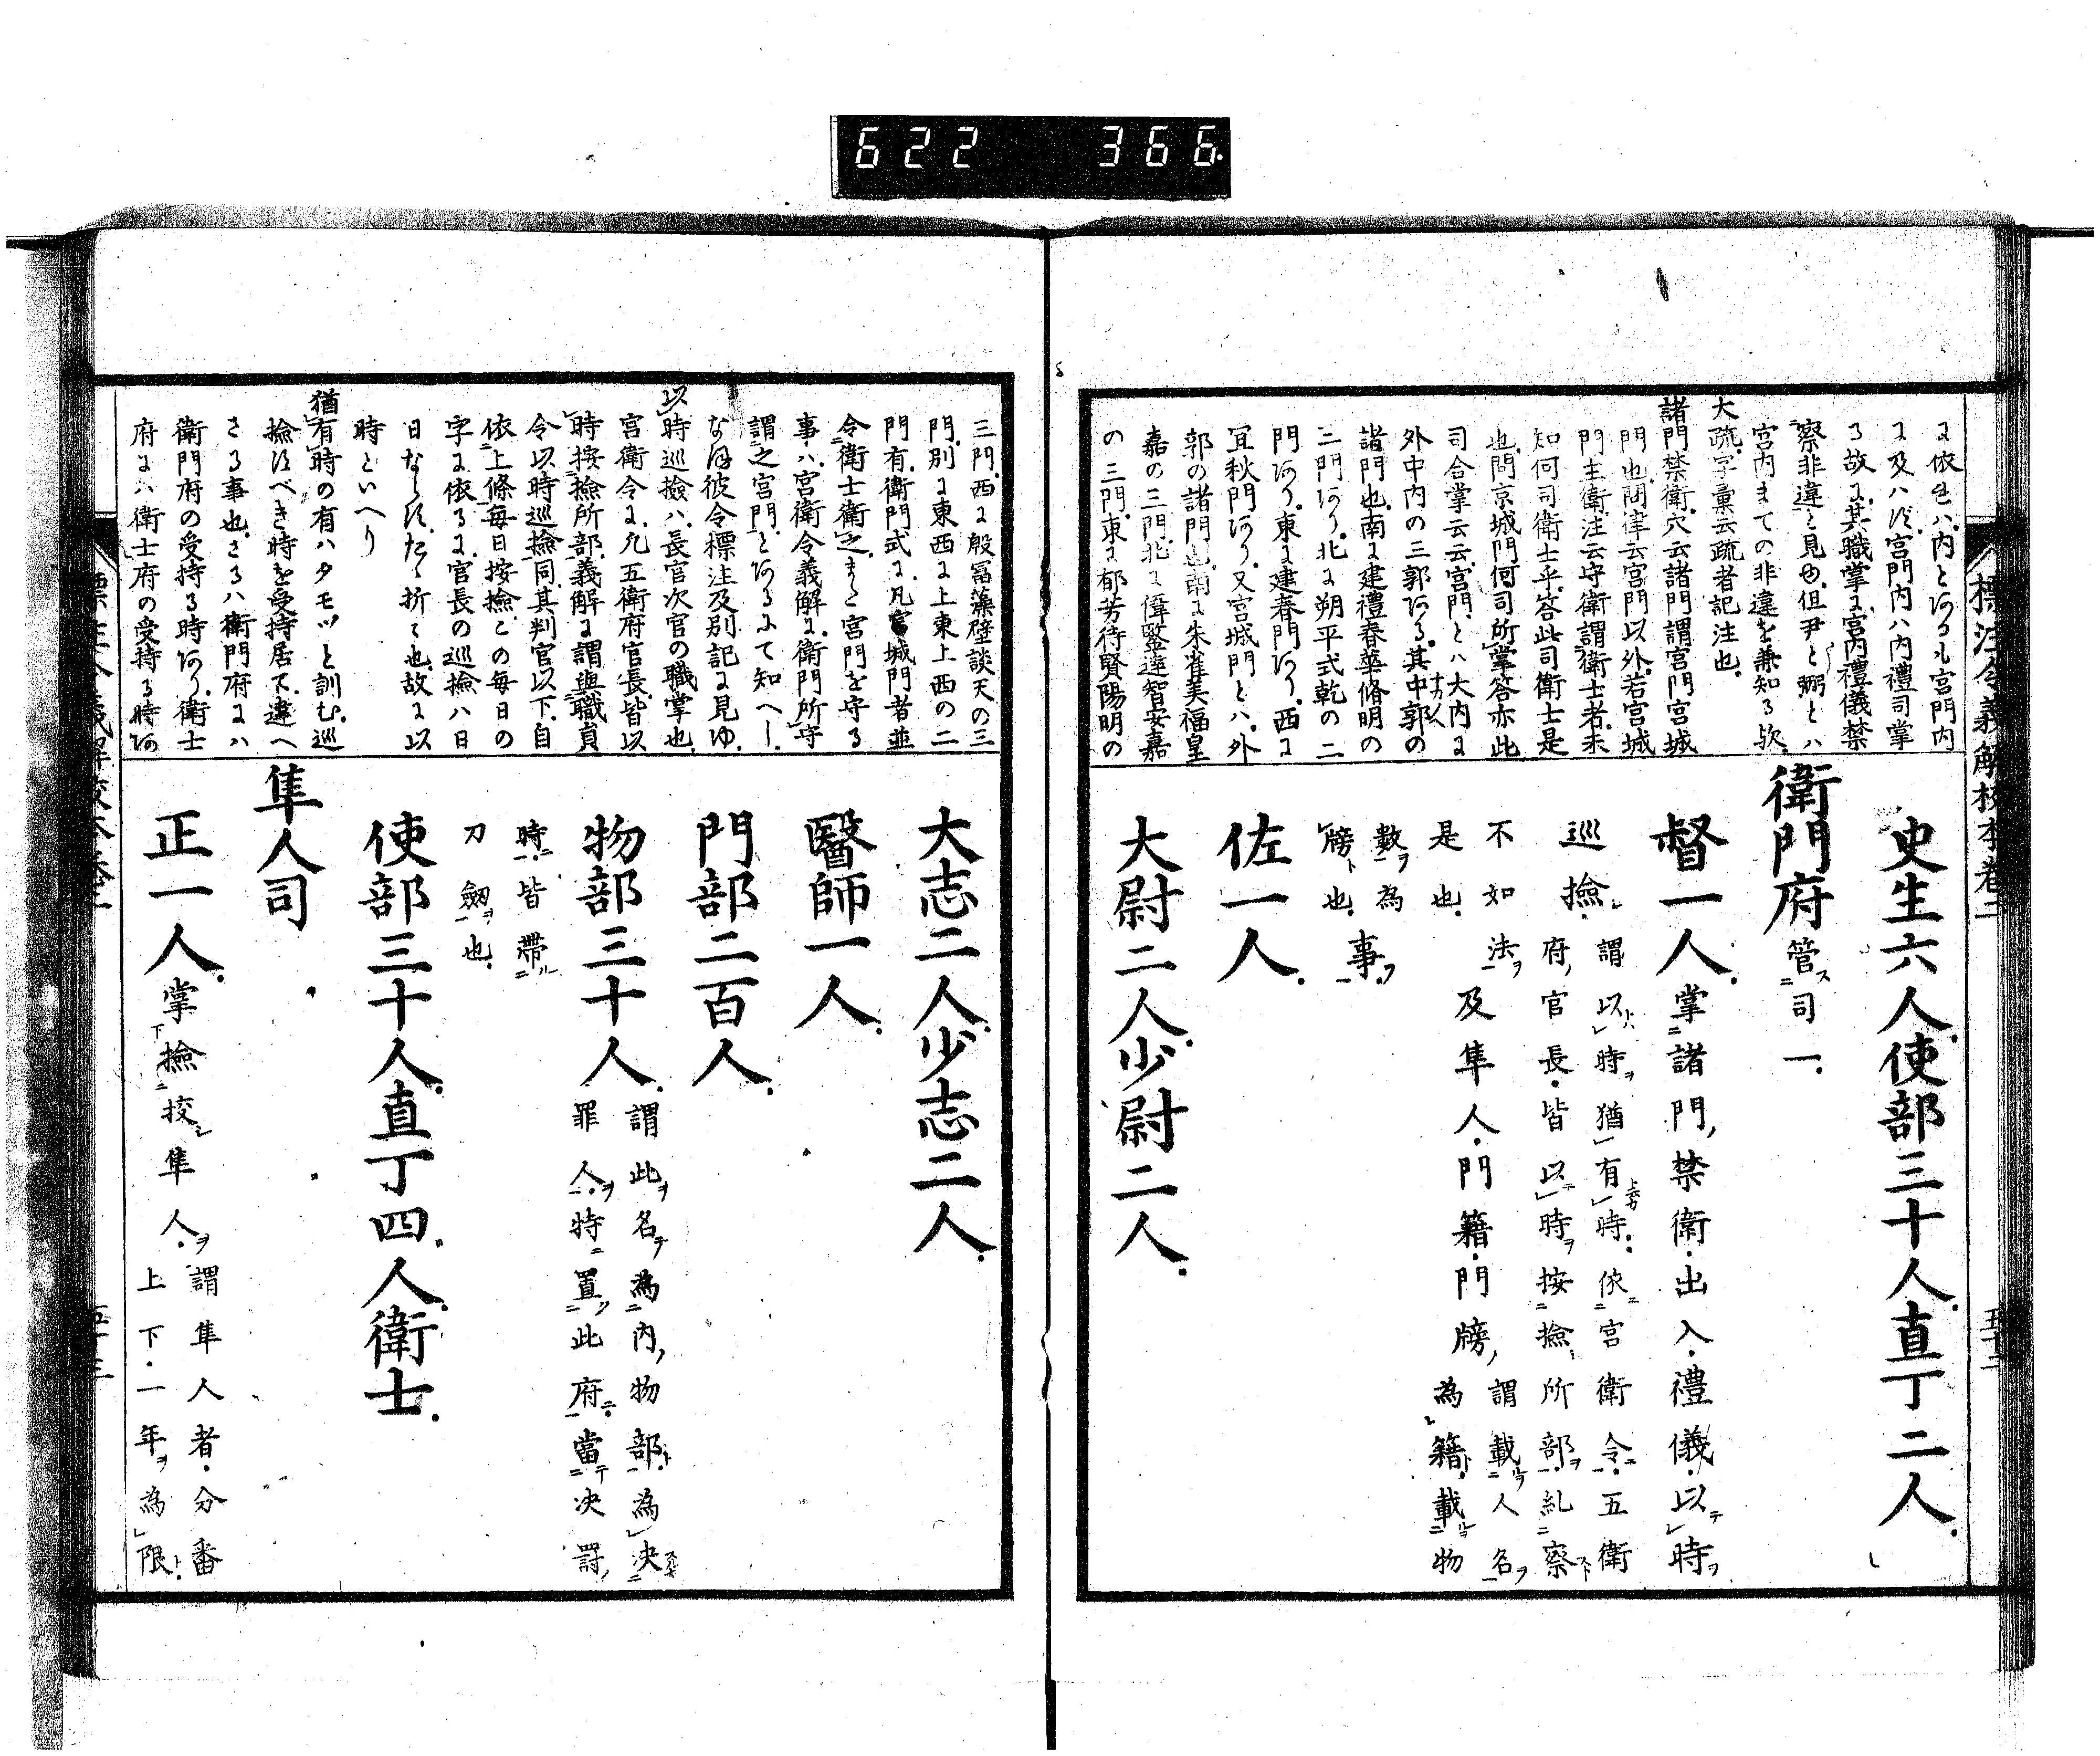 622 366
標注令義解校本卷二
に依れハ、内とある礼宮門内
に及ハす、宮門内ハ内禮司掌
る故に、其職掌に、宮内禮儀禁
察非違と見ゆ、但尹と弼とハ
宮内まての非違を兼知る歟
大疏、字彙云疏者記注也、
諸門禁衛、穴云諸門謂宮門宮城
門也、閇律云宮門以外、若宮城
門主衛、注云守衛謂衛士者、未
知何司衛士乎、答此司衛士是
也、問京城門何司所掌、答亦此
司合掌云云、宮門とハ大内に
外中内の三郭ある、其中郭の
諸門也、南に建禮春華脩明の
三門あり、北に朔平式乾の二
門あり、東に建春門あり、西に
宜秋門あり、又宮城門とハ、外
郭の諸門也、南に朱雀美福皇
嘉の三門、北に偉鑒達智安嘉
の三門、東に郁芳待賢陽明の
史生六人使部三十人直丁二人
衛門府管ス司一
督一人掌諸門、禁衛出入禮儀以テ時ヲ
巡撿謂以ハ時ヲ猶有時依宮衛令五衛
府官長皆以テ時ヲ按撿所部ヲ糺察
不如法ヲ及隼人門籍門牓、謂載人名ヲ
是也 為籍ト載物
數ヲ為
牓ト也事ヲ
佐一人
大尉二人少尉二人
三門、西に殷冨藻壁談天の三
門、別に東西に上東上西の二
門有、衛門式に、凡宮城門者並
令衛士衛之、また宮門を守る
事ハ、宮衛令義解に、衛門所守
謂之宮門、とあるにて知へし、
なほ彼令標注及別記に見ゆ、
以時巡撿ハ、長官次官の職掌也
宮衛令に、凡五衛府官長、皆以
時按撿所部、義解に謂與職員
令以時巡撿同、其判官以下、自
依上條毎日按撿との毎日の
字に依るに、官長の巡撿ハ日
日ならす、たゝ折々也、故に以
時といへり
猶有時の有ハタモツと訓む、巡
撿すべき時を受持居て、違へ
さる事也、さるハ衛門府にハ
衛門府の受持る時あり、衛士
府にハ衛士府の受持る時あ
大志二人少志二人
醫師一人
門部二百人
物部三十人謂此ヲ名テ為内、物部ト為決
罪人ヲ特ニ置ク此府ニ當テ決罰
時皆帶ル
刀劔ヲ也
使部三十人直丁四人衛士
隼人司
正一人掌撿挍隼人ヲ謂隼人者分番
上下一年ヲ為限ト